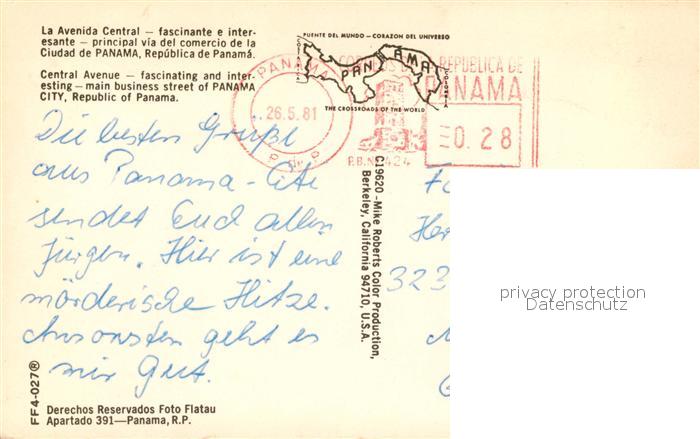 La Avenida Central – fascinante e inter-
esante – principal vía del comercio de la
Ciudad de PANAMA, República de Panamá.
Central Avenue – fascinating and inter-
esting – main business street of PANAMA
CITY, Republic of Panama.
PUENTE DEL MUNDO – CORAZON DEL UNIVERSO
PANAMA
THE CROSSROADS OF THE WORLD
PANAMA
26.5.81
REPUBLICA DE
PANAMA
0.28
P.B.Nº 424
Die besten Grüße
aus Panama-City
sendet Euch allen
Jürgen. Hier ist eine
mörderische Hitze.
Ansonsten geht es
mir Gut.
323
C19620 –Mike Roberts Color Production,
Berkeley, California 94710, U.S.A.
privacy protection
Datenschutz
FF4-027®
Derechos Reservados Foto Flatau
Apartado 391—Panama, R.P.